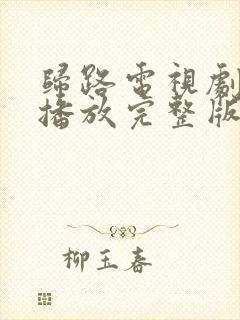 歸路電視劇
播放完整版
柳玉春